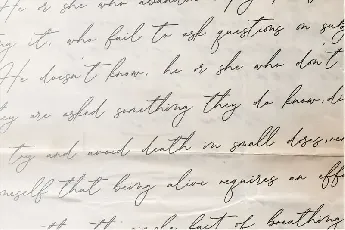 He or she who abandon
it, who fail to ask questions on sub
He doesn't know, he or she who don't
they are asked something they do know, di
try and avoid death in small doses, re
oneself that being alive requires an eff
fact of breathing